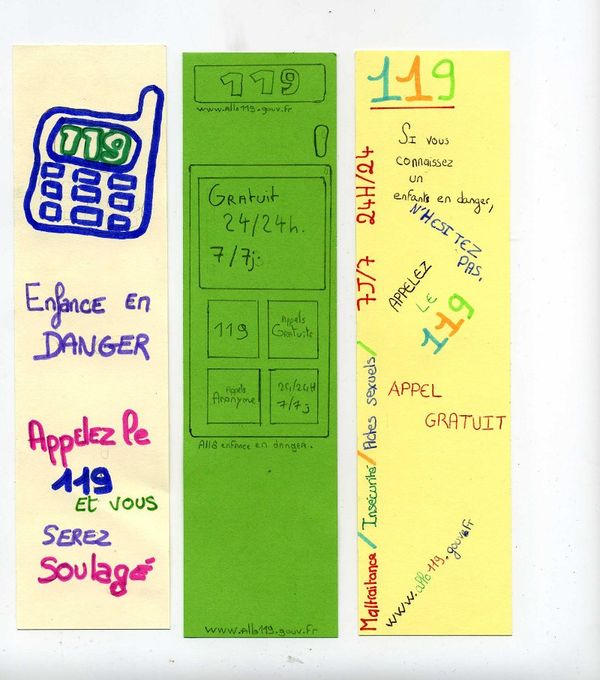 119
Enfance en
DANGER
Appelez le
119
Et vous
SEREZ
Soulagé
119
www.allo119.gouv.fr
GRATUIT
24/24h.
7/7j
119
Appels
Gratuits
Appels
Anonyme
24/24H
7/7j
Allô enfance en danger.
www.allo119.gouv.fr
119
Si vous
connaissez
un
enfants en danger,
N'HESITEZ
PAS,
APPELEZ
LE
119
APPEL
GRATUIT
www.allo119.gouv.fr
Maltraitance / Insécurité / Actes sexuels / 7J/7 24H/24